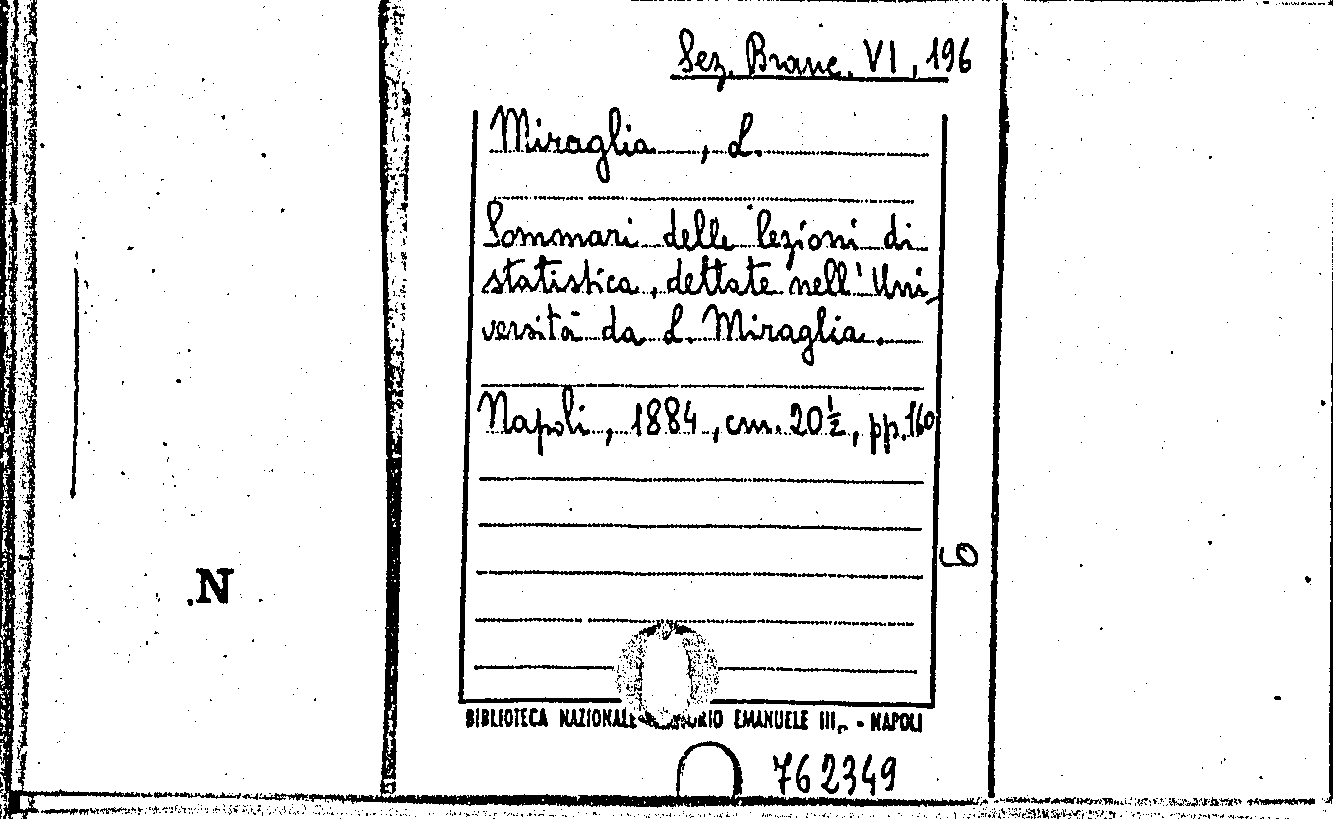 Sez. Branc. VI, 196
Miraglia, L.
Sommari delle lezioni di
statistica, dettate nell'Uni-
versità da L. Miraglia.
Napoli, 1884, cm. 20½, pp. 160
6
N
BIBLIOTECA NAZIONALE EMANUELE III - NAPOLI
762349